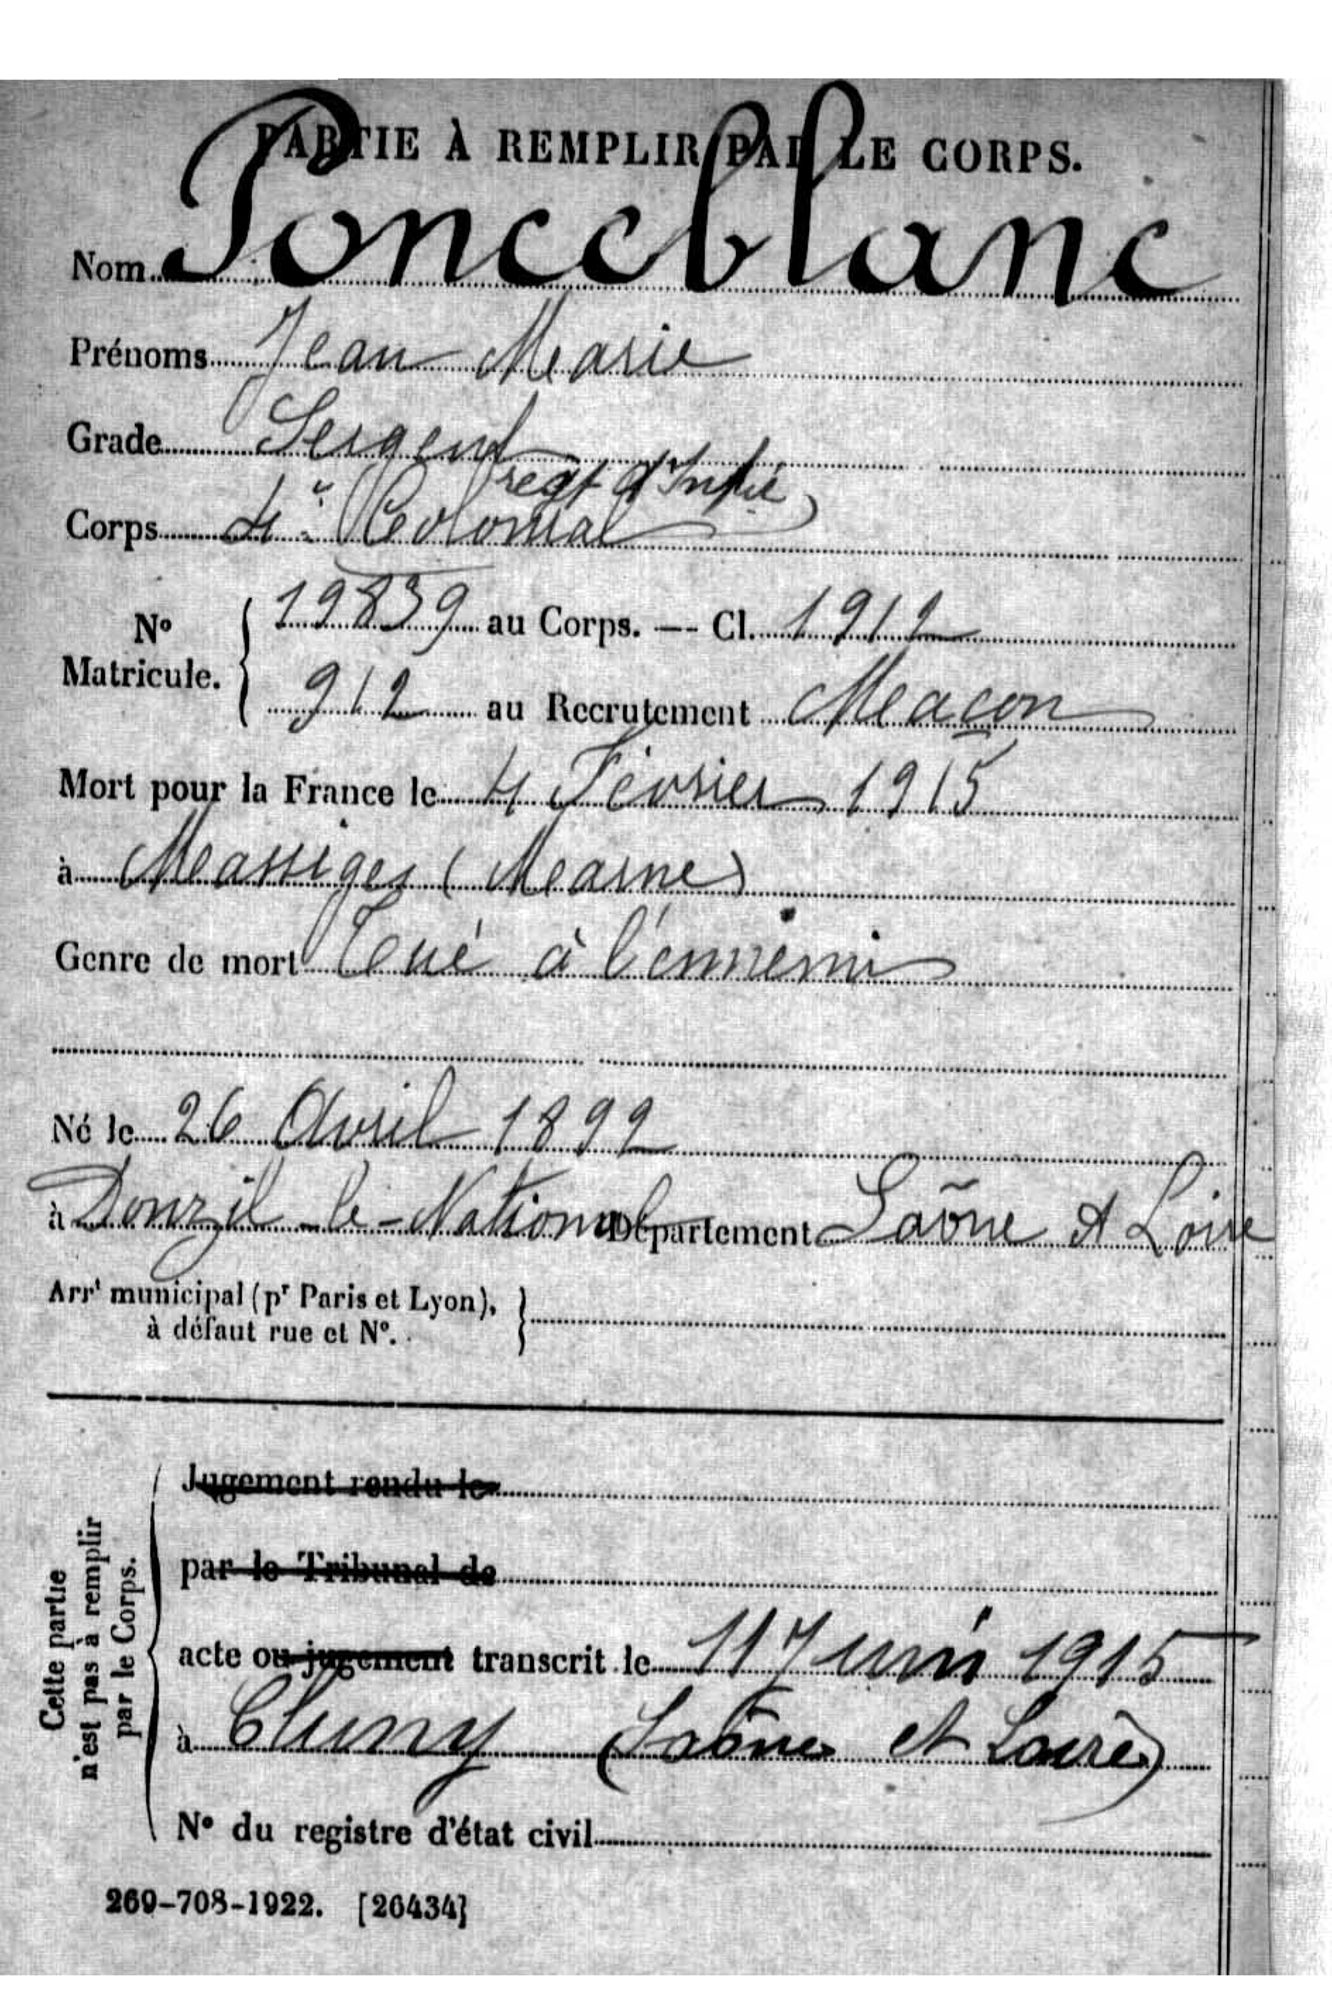 PARTIE À REMPLIR PAR LE CORPS.
Nom Ponceblanc
Prénoms Jean Marie
Grade Sergent
régt d'Inftie
Corps 4e Colonial
No Matricule. { 19839 au Corps. — Cl. 1912
912 au Recrutement Macon
Mort pour la France le 4 Février 1915
à Massiges (Marne)
Genre de mort Tué à l'ennemi
Né le 26 Avril 1892
à Donzil-le-National Département Saône et Loire
Arrt municipal (pr Paris et Lyon),
à défaut rue et No. }
Cette partie
n'est pas à remplir
par le Corps.
Jugement rendu le
par le Tribunal de
acte ou jugement transcrit le 11 Juin 1915
à Cluny (Saône et Loire)
No du registre d'état civil
269-708-1922. [26434]